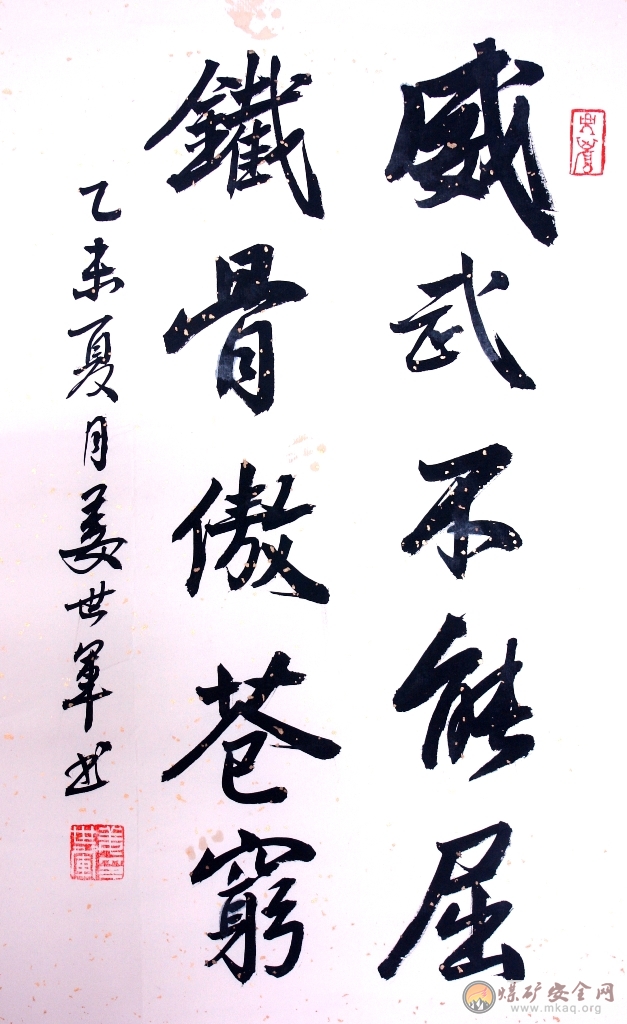 威武不能屈
鐵骨傲苍窮
乙未夏月姜世軍书
煤矿安全网
www.mkaq.org